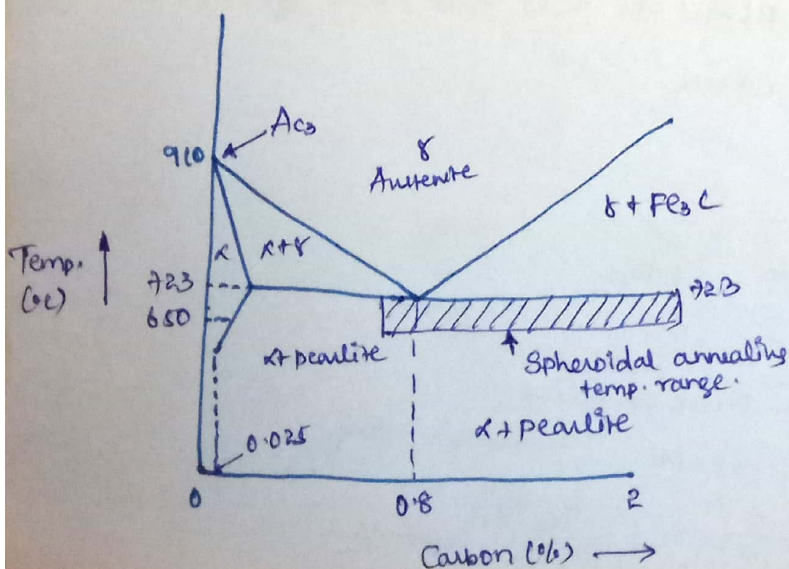 Ac₃
910
γ
Austenite
γ + Fe₃ C
α
α+γ
Temp.
(°c)
723
723
650
α+pearlite
Spheroidal annealing
temp. range.
α+pearlite
0.025
0
0.8
2
Carbon (%)